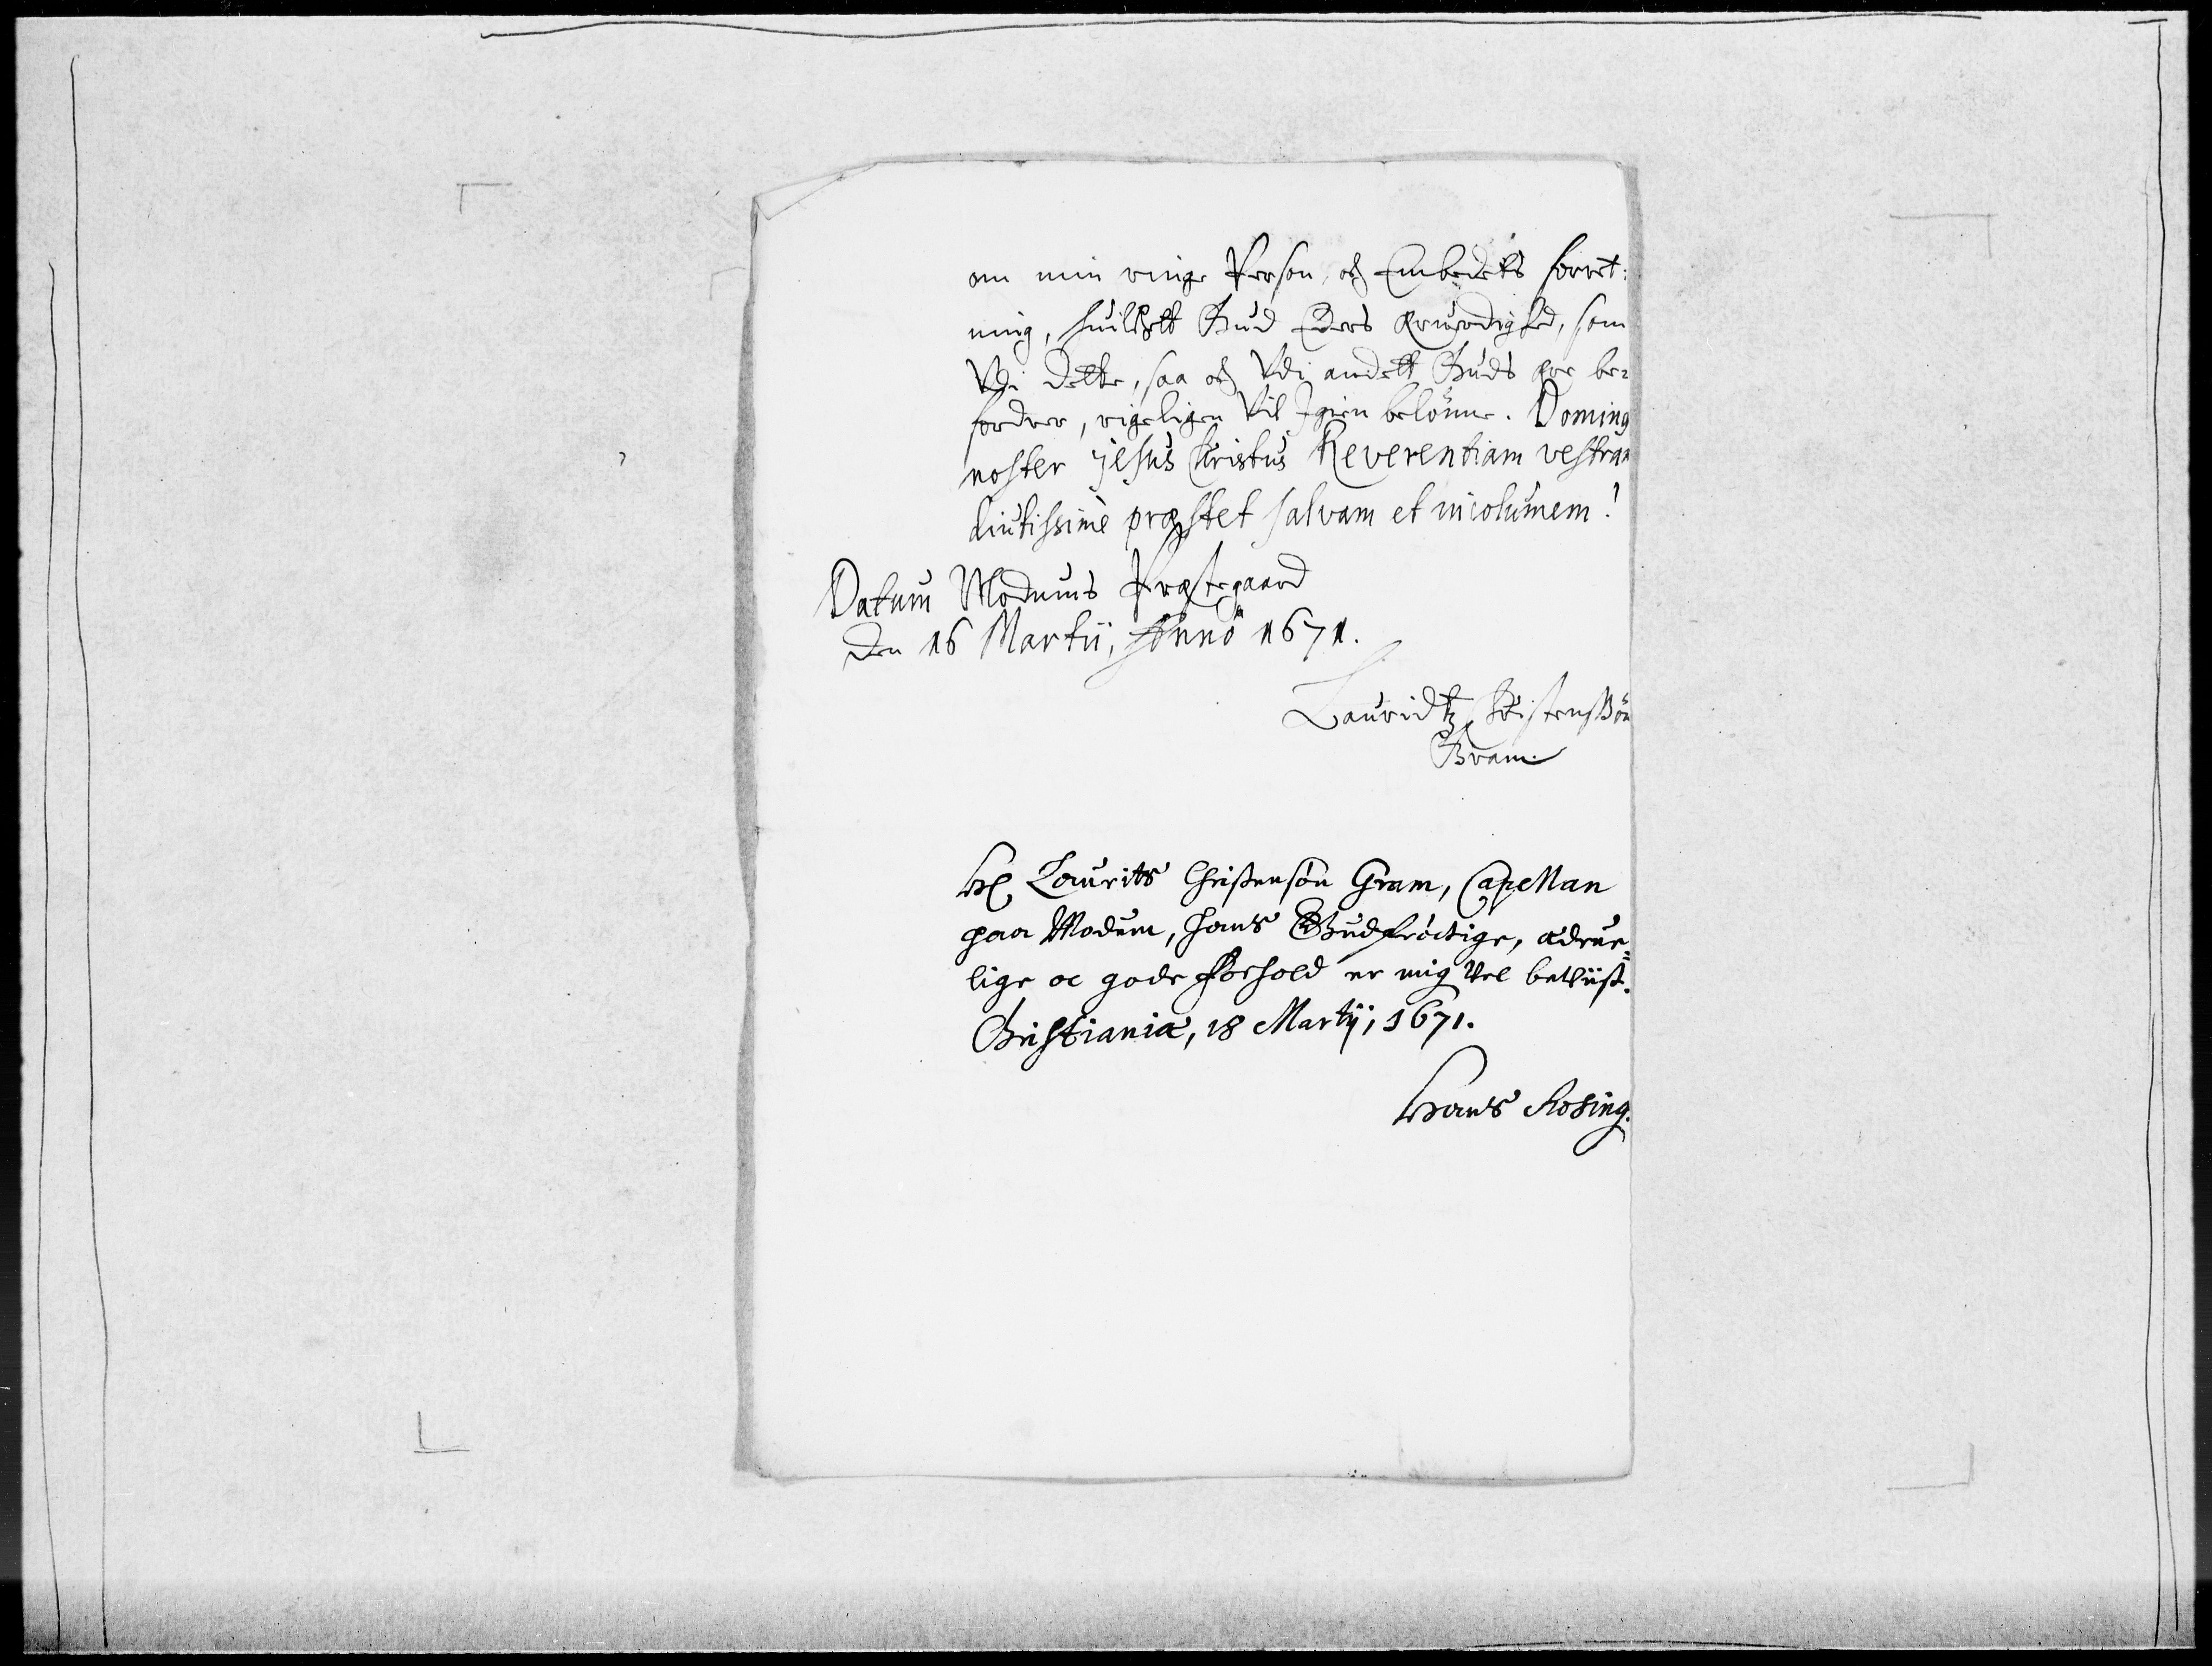 om min ringe Person, och Embedets forret:
ning, huilchett Gud Eders Ærwerdighed, som
Udi dette, saa och Udi andett Guds ære be-
fordrer, rigeligen Vil Igien belönne. Dominꝰ
noster jesus Christus Reverentiam vestram
diutissimè præstet salvam et incolumem!
Datum Modums Præstegaard
den 16 Martii, Anno 1671.
Lauridtz Christensßön
Gram.
Hr Laurits Christensön Gram, Capellan
paa Modum, hans Gudfröctige, ædrue=
lige oc gode Forhold er mig Vel beviist.
Christianiæ, 18 Martij, 1671.
Hans Rosing.